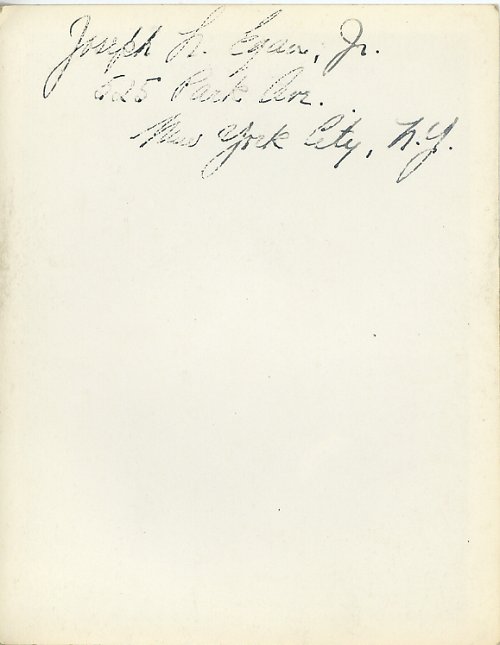 Joseph L. Egan, Jr.
525 Park Ave.
New York City, N.Y.